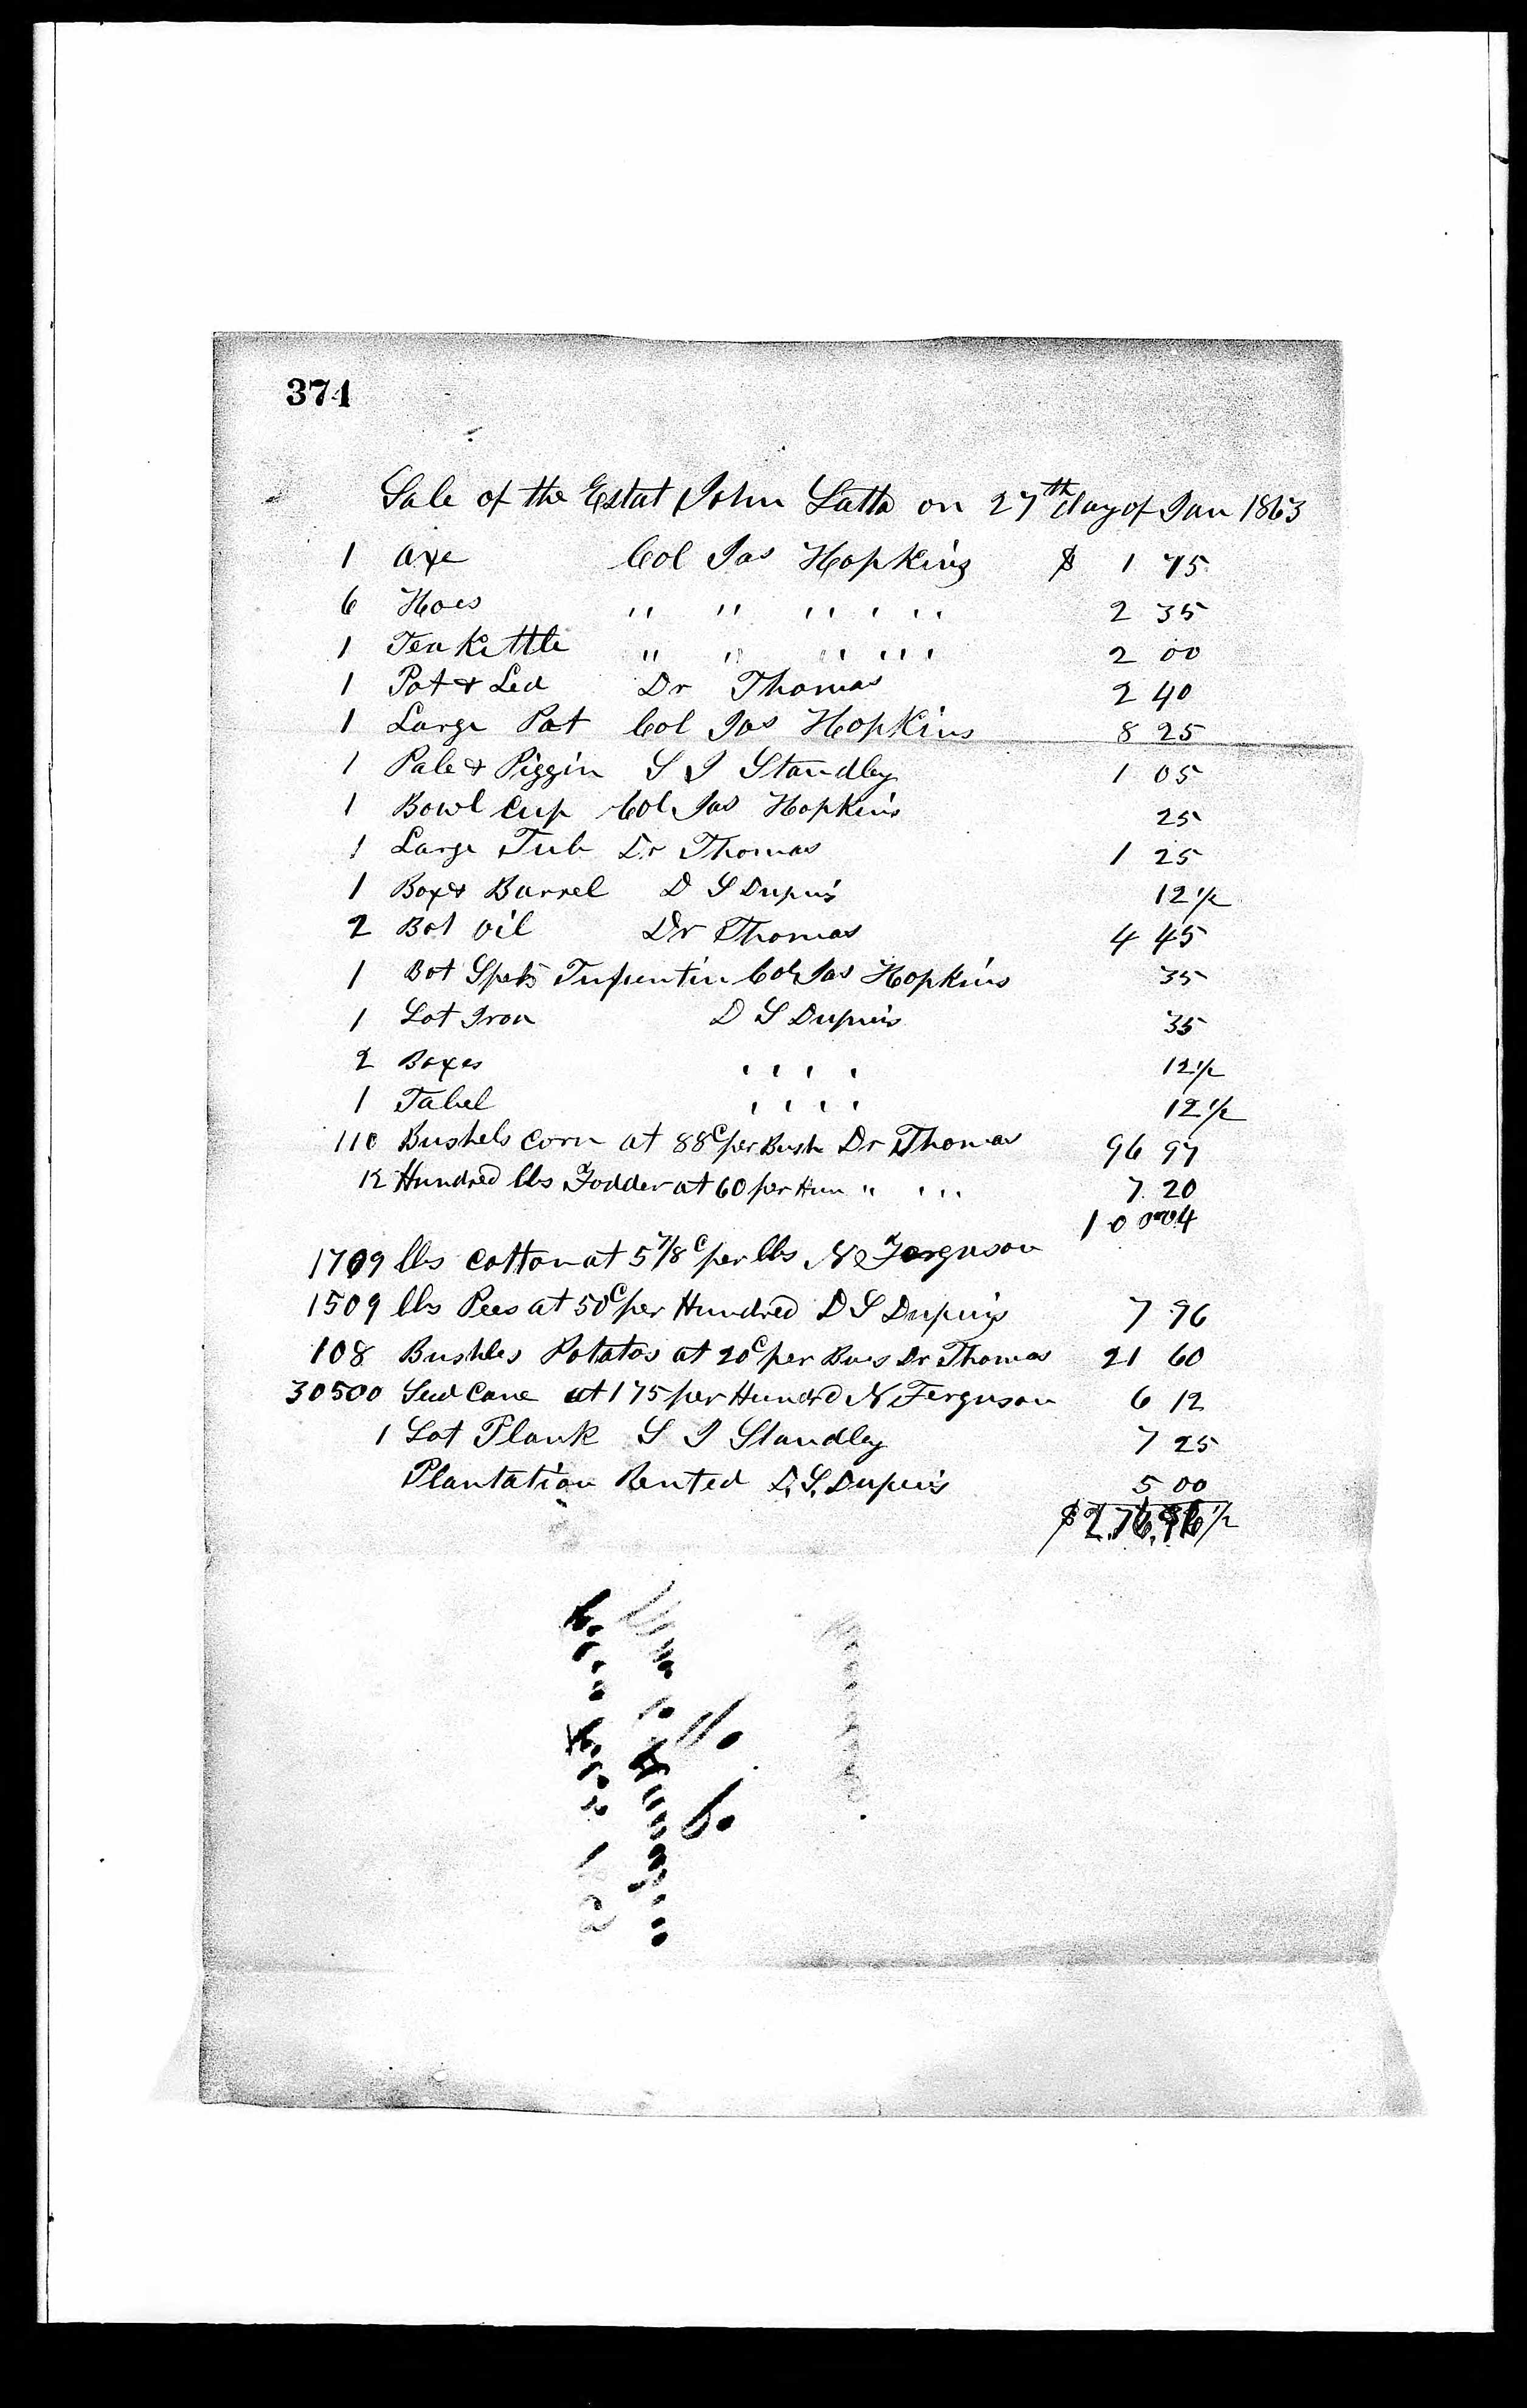 374
Sale of the Estat John Latta on 27th day of Jan 1863
1 axe Col Jas Hopkins $ 1 75
6 Hoes " " " " " 2 35
1 Tea Kettle " " " " " 2 00
1 Pot & Led Dr Thomas 2 40
1 Large Pot Col Jas Hopkins 8 25
1 Pale & Piggin S J Standley 1 05
1 Bowl Cup Col Jas Hopkins 25
1 Large Tub Dr Thomas 1 25
1 Box & Barrel D S Dupuis 12 1/2
2 Bot Oil Dr Thomas 4 45
1 Bot Turpentin Col Jas Hopkins 35
1 Lot Iron D S Dupuis 35
2 Boxes " " " " 12 1/2
1 Tabel " " " " 12 1/2
110 Bushels Corn at 88c per Bush Dr Thomas 96 97
12 Hundred lbs Fodder at 60 per Hun " " " 7 20
1709 lbs Cotton at 5 7/8c per lbs N Ferguson 100 04
1509 lbs Pees at 50c per Hundred D S Dupuis 7 96
108 Bushles Potatos at 20c per Bus Dr Thomas 21 60
30500 Cane at 175 per Hundrd N Ferguson 6 12
1 Lot Plank S J Standley 7 25
Plantation Rented D. S. Dupuis 5 00